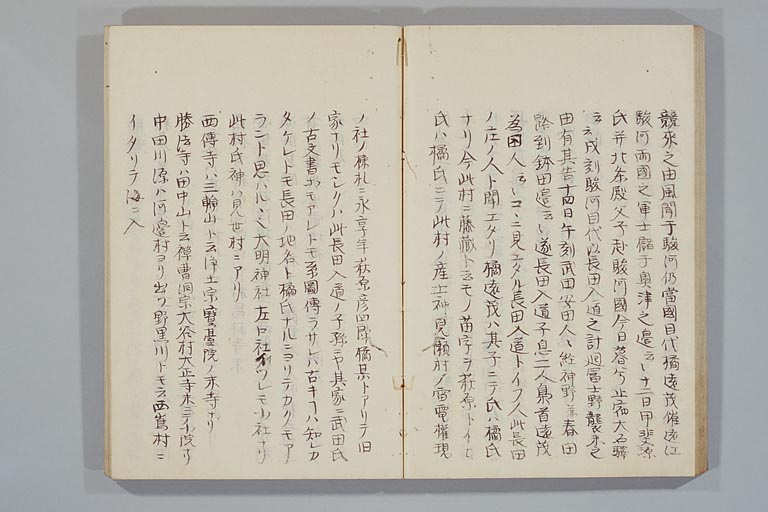 競来之由風聞于駿河仍當國目代橘遠茂催遠江
駿河両國之軍士儲于奥津之邊云々十三日甲斐源
氏并北条殿父子赴駿河國今日暮兮止宿大石驛
云云戌刻駿河目代以長田入道之計廻冨士野襲来之
由有其告十四日午刻武田安田人々經神野并春田
路到鉢田邊云々遂長田入道子息二人梟首遠茂
為囚人云々コヽニ見エタル長田入道トイフ人此長田
ノ庄ノ人ト聞エタリ橘遠茂ハ其子ニテ氏ハ橘氏
ナリ今此村ニ藤蔵ト云モノ苗字ヲ萩原トイヒ
氏ハ橘氏ニテ此村ノ産土神見願村ノ雷電権現
ノ社ノ棟札ニ永享年萩原彦四郎橘某トアリテ旧
家ナリモシクハ此長田入道ノ子孫ニヤ其家ニ武田氏
ノ古文書モアレトモ系圖傳ラサレハ古キコトハ知レカ
タケレトモ長田ノ地名ト橘氏ナルニヨリテカクモア
ラント思ハルヽ大明神社左口社イツレモ小社ナリ
此村氏神ハ見世村ニアリ
西傳寺ハ三輪山ト云浄土宗寶臺院ノ末寺ナリ
勝法寺ハ田中山ト云禅曹洞宗大谷村大正寺末ニテ小院ナリ
中田川源ハ河邊村ヨリ出ツ野黒川トモ云西嶌村ニ
イタリテ海ニ入